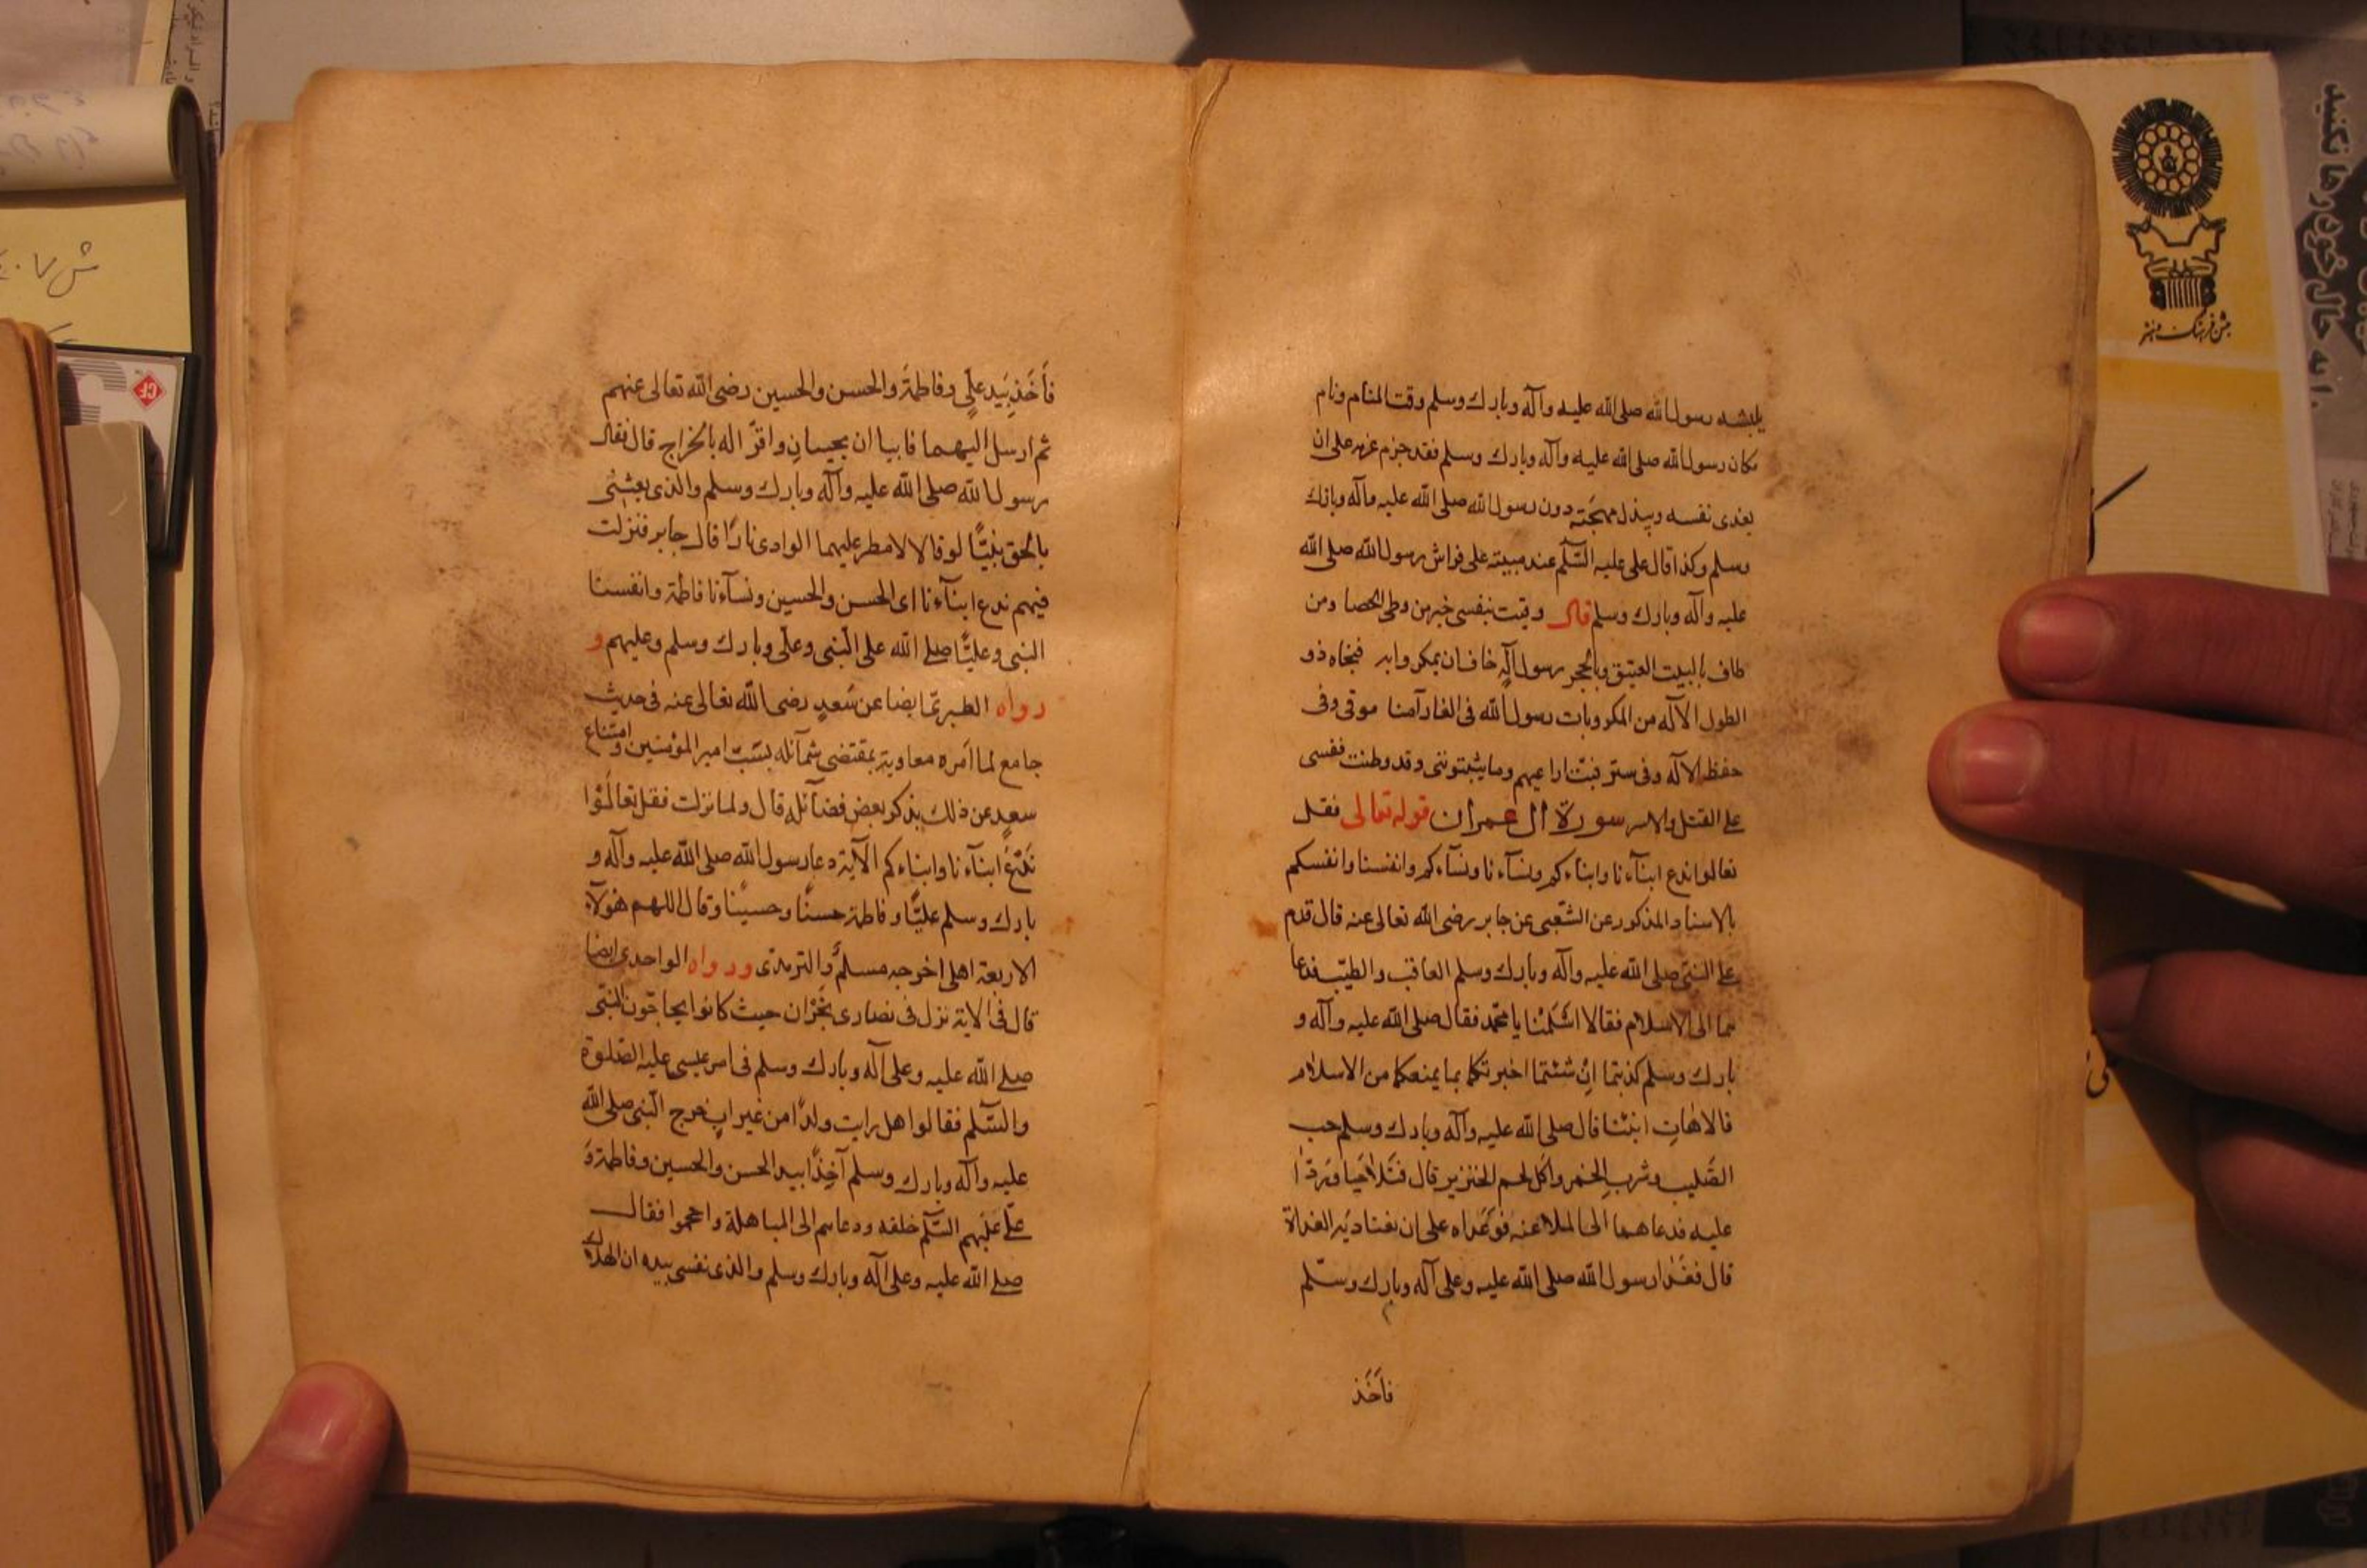 يلبسه رسول الله صلى الله عليه وآله وبارك وسلم وقت المنام ونام
مكان رسول الله صلى الله عليه وآله وبارك وسلم فقد جزم عزمه على ان
يفدى نفسه ويبذل مهجَته دون رسول الله صلى الله عليه وآله وبارك
وسلم وكذا قال على عليه السّلم عند مبيته على فراش رسول الله صلى الله
عليه وآله وبارك وسلم قال وقيت بنفسى خير من وطى الحصا ومن
طاف بالبيت العتيق وبالحجر رسول اله خاف ان يمكروا به فنجاه ذو
الطول الاله من المكر وبات رسول الله فى الغار آمنا موقى وفى
حفظ الاله وفى ستر فبتّ اراعيهم وما يثبتوننى وقد وطنت نفسى
على القتل والاسر سورة ال عمران قوله تعالى فقل
تعالوا ندع ابنآءنا وابناءكم ونسآءنا ونسآءكم وانفسنا وانفسكم
بالاسناد المذكور عن الشّعبى عن جابر رضى الله تعالى عنه قال قدم
على النبىّ صلى الله عليه وآله وبارك وسلم العاقب والطيّب فدعا
هما الى الاسلام فقالا اسْلَمْنا يا محمّد فقال صلى الله عليه وآله و
بارك وسلم كذبتما ان شئتما اخبرتكما بما يمنعكما من الاسلام
قالا هات انبئنا قال صلى الله عليه وآله وبارك وسلم حب
الصّليب وشرب الخمر واكل لحم الخنزير قال فَتَلاحَيا وَرَدّا
عليه فدعاهما الى الملاعنه فَوَعَداه على ان يغاديَه الغداة
قال فغَدا رسول الله صلى الله عليه وعلى آله وبارك وسلّم
فأخَذ
فَأخَذ بيَد علّى وفاطمةَ والحسن والحسين رضى الله تعالى عنهم
ثم ارسل اليهما فابيا ان يجيبان واقرّا له بالخراج قال فقال
رسول الله صلى الله عليه وآله وبارك وسلم والذى بعثنى
بالحق نبيًّا لو قالا لا لامطر عليهما الوادى نارًا قال جابر فنزلت
فيهم ندع ابنآءنا اى الحسن والحسين ونسآءنا فاطمة وانفسنا
النبى وعليًّا صلى الله على النّبى وعلّى وبارك وسلم وعليهم و
رواه الطبرىّ ايضا عن سَعدٍ رضى الله تعالى عنه فى حديث
جامع لما امره معاوية بمقتضى شمآئله بسَبّ امير المؤمنين وامتناع
سعيد عن ذلك بذكر بعض فضآئله قال ولما نزلت فقل تعالَوْا
نَدْعُ ابنآءنا وابناءكم الآية دعا رسول الله صلى الله عليه وآله و
بارك وسلم عليًّا وفاطمة وحسنًا وحسينًا وقال اللهم هؤلآء
الاربعة اهلى اخرجه مسلمٌ والترمذى ورواه الواحدى ايضا
قال فى الاية نزل فى نصارى نَجْران حيث كانوا يحاجّون النبّى
صلى الله عليه وعلى آله وبارك وسلم فى امر عيسى عليه الصّلوة
والسّلم فقالوا هل رايت ولدًا من غير ابٍ فخرج النّبى صلى الله
عليه وآله وبارك وسلم آخِذًا بيد الحسن والحسين وفاطمة وَ
علّى عليهم السّلم خلفه ودعاهم الى المباهلة واحجموا فقال
صلى الله عليه وعلى آله وبارك وسلم والذى نفسى بيده ان الهلاك
جشن فرهنگ و هنر